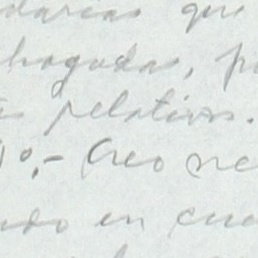 darias que
hogadas, p
s relativos.
1º.- Creo ne
ndo en cua